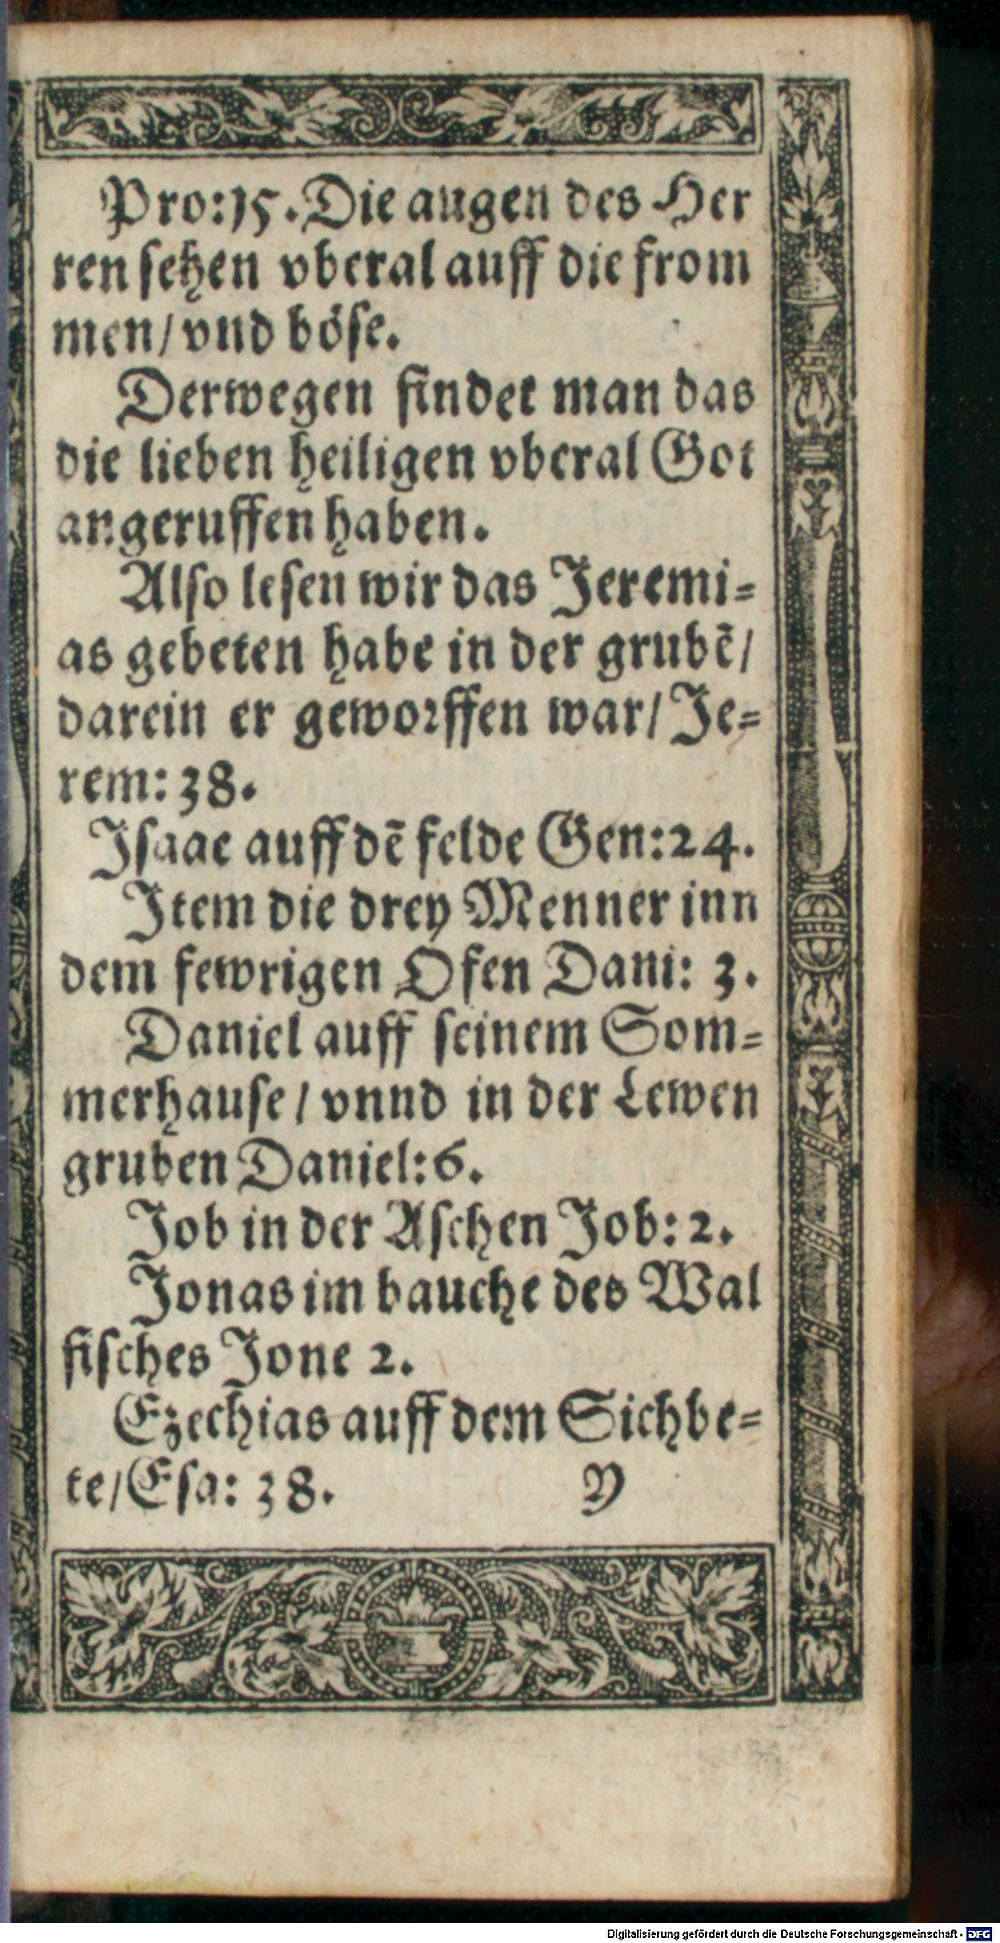 Pro:15. Die augen des Her
ren sehen vberal auff die from
men/vnd böse.
Derwegen findet man das
die lieben heiligen vberal Got
angeruffen haben.
Also lesen wir das Jeremi=
as gebeten habe in der grubē/
darein er geworffen war/Je=
rem: 38.
Isaac auff dē felde Gen:24.
Item die drey Menner inn
dem fewrigen Ofen Dani: 3.
Daniel auff seinem Som=
merhause/vnnd in der Lewen
gruben Daniel:6.
Job in der Aschen Job: 2.
Jonas im bauche des Wal
fisches Jone 2.
Ezechias auff dem Sichbe=
te/Esa: 38. Y
Digitalisierung gefördert durch die Deutsche Forschungsgemeinschaft - DFG